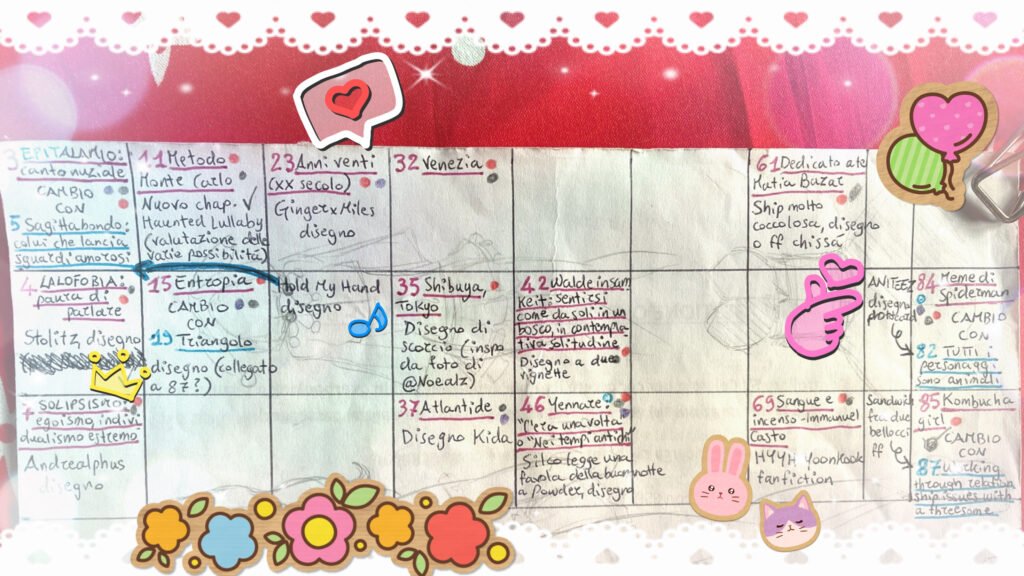 3 EPITALAMIO:
canto nuziale
CAMBIO
CON
5 Sagittabondo:
colui che lancia
sguardi amorosi
11 Metodo
Monte Carlo
Nuovo chap. ✓
Haunted Lullaby
(valutazione delle
varie possibilità)
23 Anni venti
(XX secolo)
Ginger x Miles
disegno
32 Venezia
61 Dedicato a te
Matia Bazar
Ship molto
coccolosa, disegno
o ff chissà
4 LALOFOBIA:
paura di
parlare
Stolitz, disegno
15 Entropia
CAMBIO
CON
19 Triangolo
disegno (collegato
a 87?)
Hold My Hand
disegno
35 Shibuya,
Tokyo
Disegno di
scorcio (inspo
da foto di
@Noealz)
42 Waldeinsam
keit: sentirsi
come da soli in un
bosco, in contempla
tiva solitudine
Disegno a due
vignette
ANITEEZ
disegno
postcard
84 Meme di
Spiderman
CAMBIO
CON
82 TUTTI i
personaggi
sono animali
7 SOLIPSISMO:
egoismo, indivi
dualismo estremo
Andrealphus
disegno
37 Atlantide
Disegno Kida
46 Yennare:
"C'era una volta"
o "Nei tempi antichi"
Silco legge una
favola della buonanotte
a Powder, disegno
69 Sangue e
incenso - Immanuel
Casto
HYYH YoonKook
fanfiction
Sandwich
fra due
bellocci
ff
85 Kombucha
girl
CAMBIO
CON
87 Working
through relation
ship issues with
a threesome